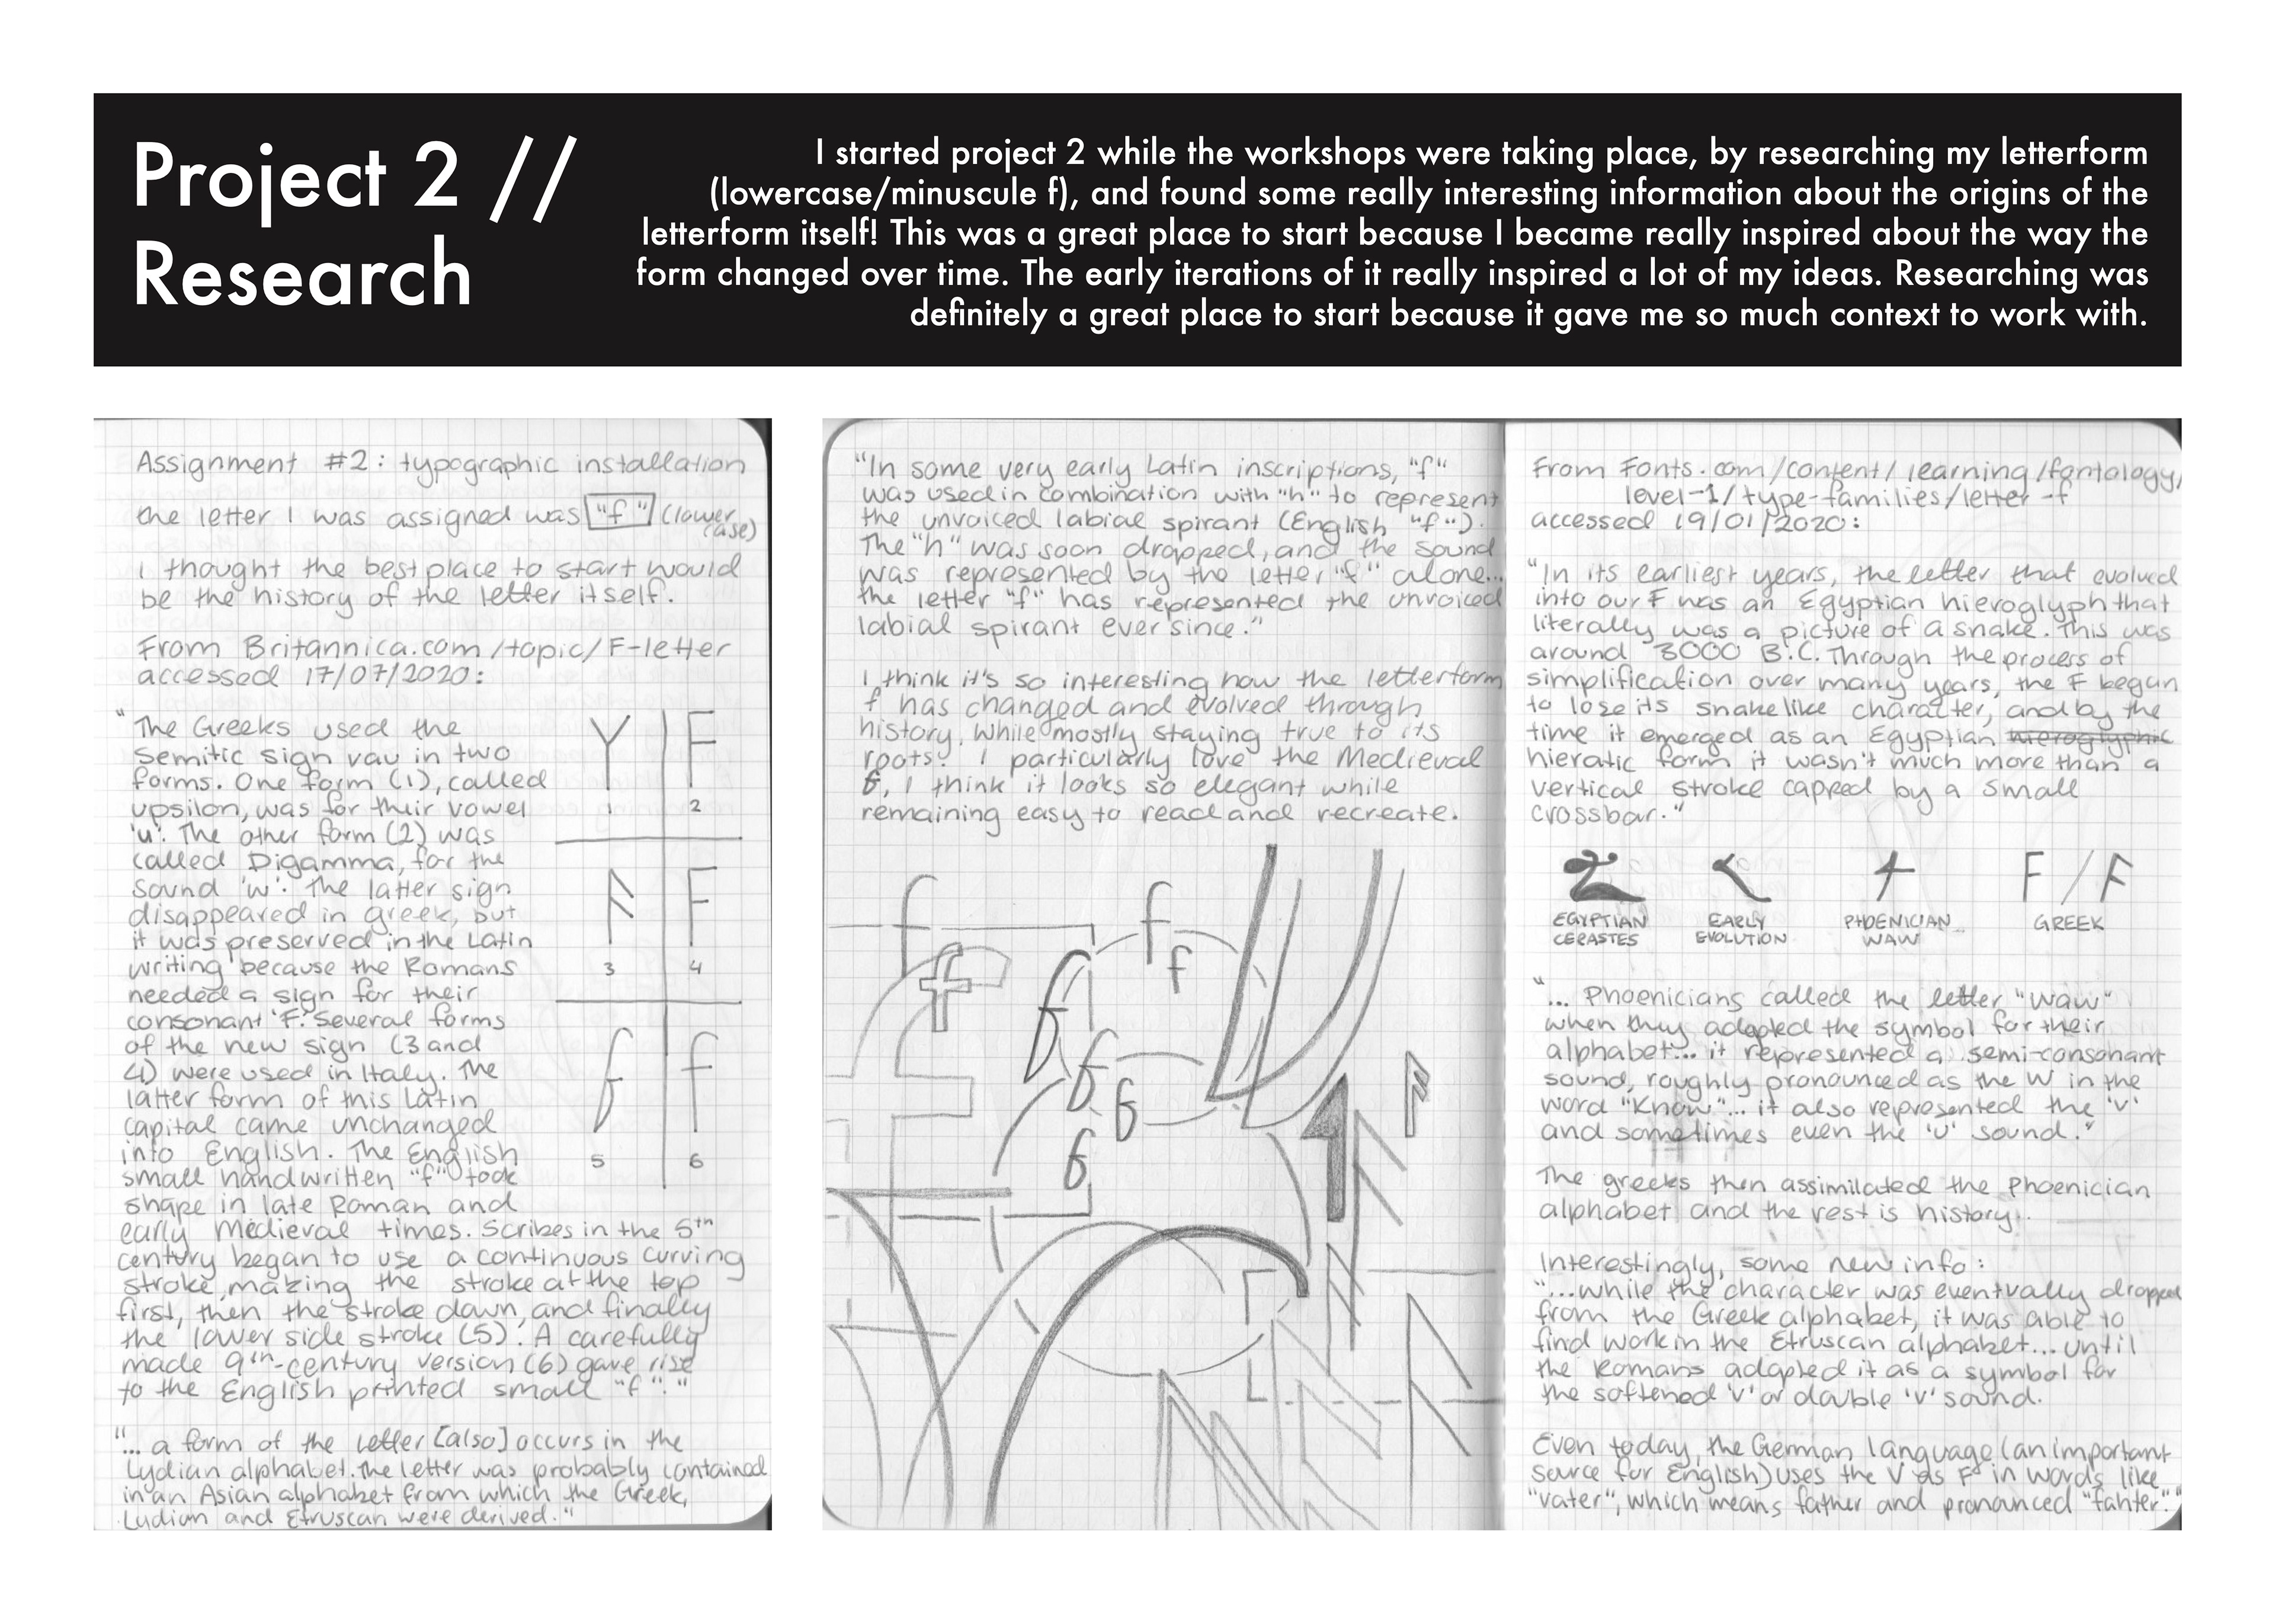 Project 2 //
Research
I started project 2 while the workshops were taking place, by researching my letterform
(lowercase/minuscule f), and found some really interesting information about the origins of the
letterform itself! This was a great place to start because I became really inspired about the way the
form changed over time. The early iterations of it really inspired a lot of my ideas. Researching was
definitely a great place to start because it gave me so much context to work with.
Assignment #2: typographic installation
the letter I was assigned was "f" (lower
case)
I thought the best place to start would
be the history of the letter itself.
From Britannica.com/topic/F-letter
accessed 17/07/2020:
"The Greeks used the
Semitic sign vau in two
forms. One form (1), called
upsilon, was for their vowel
'u'. The other form (2) was
called Digamma, for the
sound 'w'. The latter sign
disappeared in greek, but
it was preserved in the Latin
writing because the Romans
needed a sign for their
consonant 'F'. Several forms
of the new sign (3 and
4) were used in Italy. The
latter form of this Latin
capital came unchanged
into English. The English
small handwritten "f" took
shape in late Roman and
early Medieval times. Scribes in the 5th
century began to use a continuous curving
stroke, making the stroke at the top
first, then the stroke down, and finally
the lower side stroke (5). A carefully
made 9th-century version (6) gave rise
to the English printed small "f"."
Y F
1 2
F
3 4
f f
5 6
"... a form of the letter [also] occurs in the
Lydian alphabet. The letter was probably contained
in an Asian alphabet from which the Greek,
Lydian and Etruscan were derived."
"In some very early Latin inscriptions, "f"
was used in combination with "h" to represent
the unvoiced labial spirant (English "f").
The "h" was soon dropped, and the sound
was represented by the letter "f" alone...
the letter "f" has represented the unvoiced
labial spirant ever since."
I think it's so interesting how the letterform
f has changed and evolved through
history, while mostly staying true to its
roots! I particularly love the Medieval
f, I think it looks so elegant while
remaining easy to read and recreate.
From Fonts.com/content/learning/fontology/
level-1/type-families/letter-f
accessed 19/01/2020:
"In its earliest years, the letter that evolved
into our F was an Egyptian hieroglyph that
literally was a picture of a snake. This was
around 3000 B.C. Through the process of
simplification over many years, the F began
to lose its snakelike character, and by the
time it emerged as an Egyptian hieroglyphic
hieratic form it wasn't much more than a
vertical stroke capped by a small
crossbar."
F / F
EGYPTIAN CERASTES
EARLY EVOLUTION
PHOENICIAN WAW
GREEK
"... Phoenicians called the letter "waw"
when they adopted the symbol for their
alphabet... it represented a semi-consonant
sound, roughly pronounced as the W in the
word "Know"... it also represented the 'v'
and sometimes even the 'u' sound."
The greeks then assimilated the Phoenician
alphabet and the rest is history.
Interestingly, some new info:
"...while the character was eventually dropped
from the Greek alphabet, it was able to
find work in the Etruscan alphabet... until
the Romans adapted it as a symbol for
the softened 'v' or double 'v' sound.
Even today, the German language (an important
source for English) uses the V as F in words like
"vater", which means father and pronounced "fahter"."